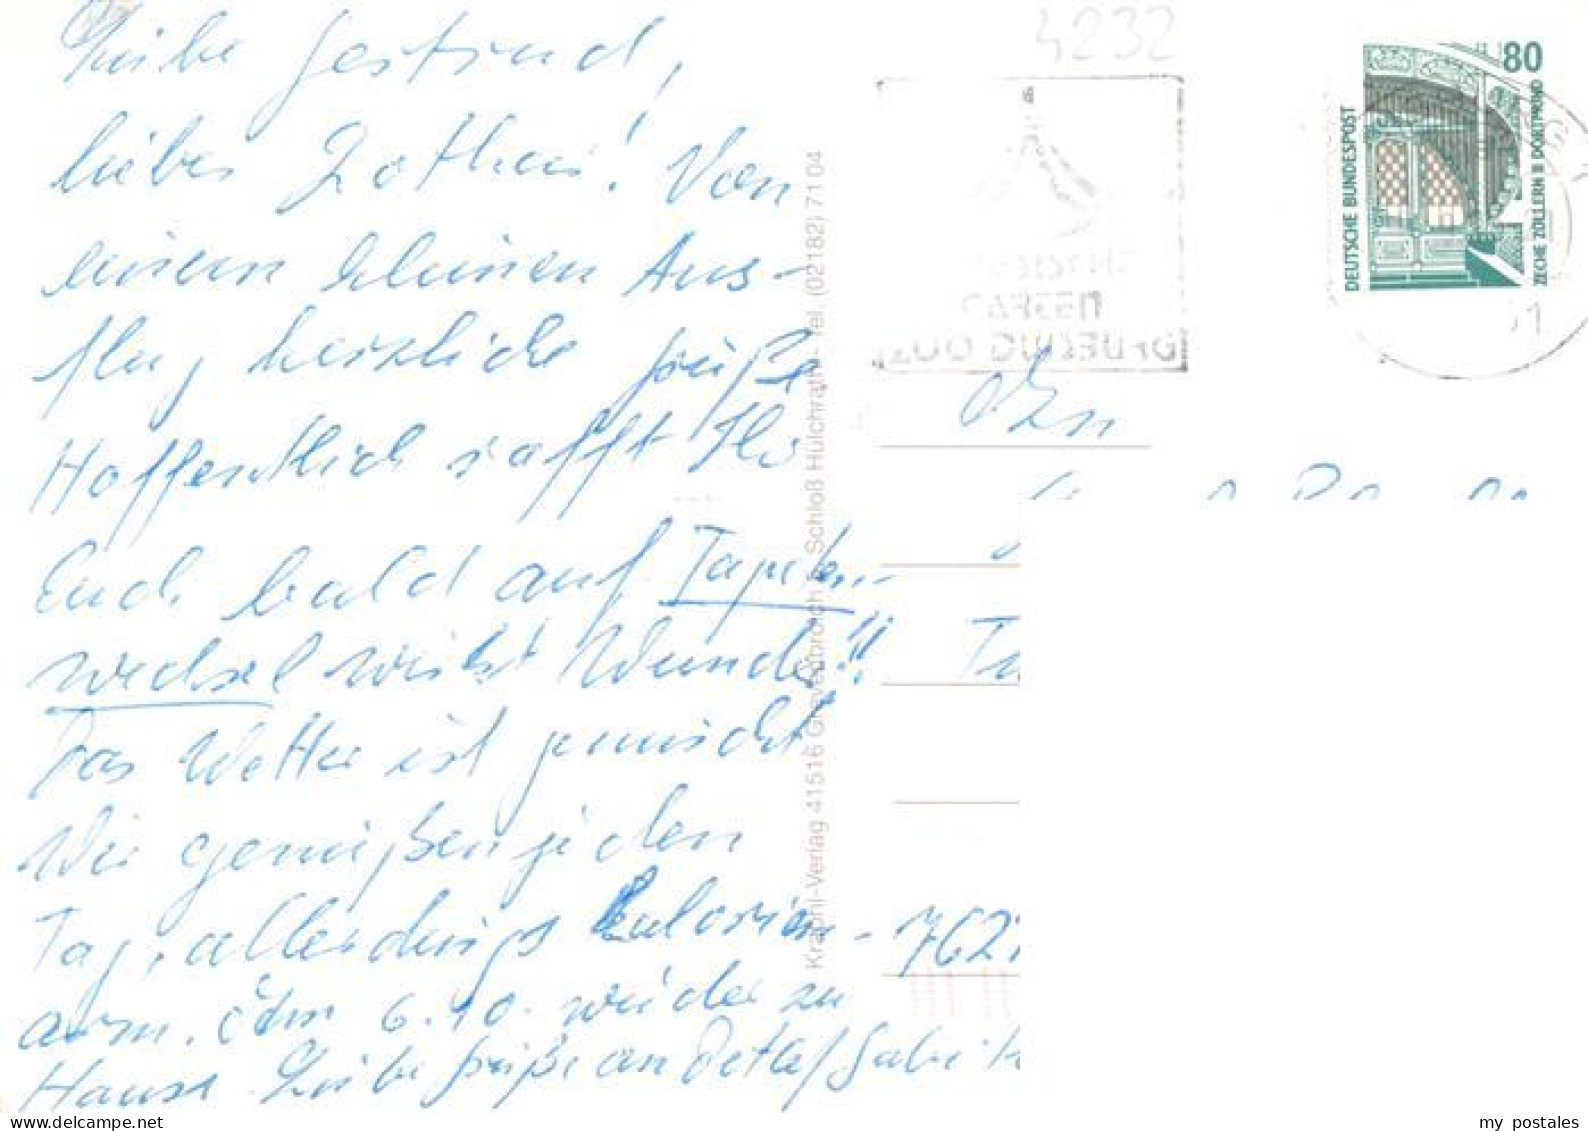 Liebe Gertrud,
liebes Lothar! Von
einem kleinen Aus-
flug herzliche Grüße
Hoffentlich rafft Ihr
Euch bald auf Tapeten-
wechsel wirkt Wunder!!
Das Wetter ist gemischt
Wir genießen jeden
Tag, allerdings kalorien-
arm. Am 6.10. wieder zu
Hause. Liebe Grüße an Detlef Gabi
4232
DEUTSCHE BUNDESPOST
80
ZECHE ZOLLERN II DORTMUND
GARTEN
ZOO DUISBURG
51
Krapohl-Verlag 41516 Grevenbroich Schloß Hülchrath Tel. (02182) 7104
762
my postales